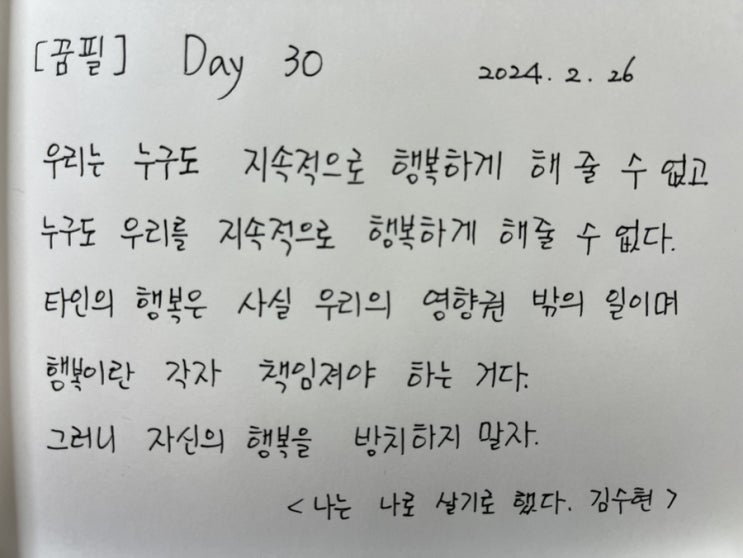 [꿈필] Day 30 2024. 2. 26
우리는 누구도 지속적으로 행복하게 해 줄 수 없고
누구도 우리를 지속적으로 행복하게 해줄 수 없다.
타인의 행복은 사실 우리의 영향권 밖의 일이며
행복이란 각자 책임져야 하는 거다.
그러니 자신의 행복을 방치하지 말자.
< 나는 나로 살기로 했다. 김수현 >